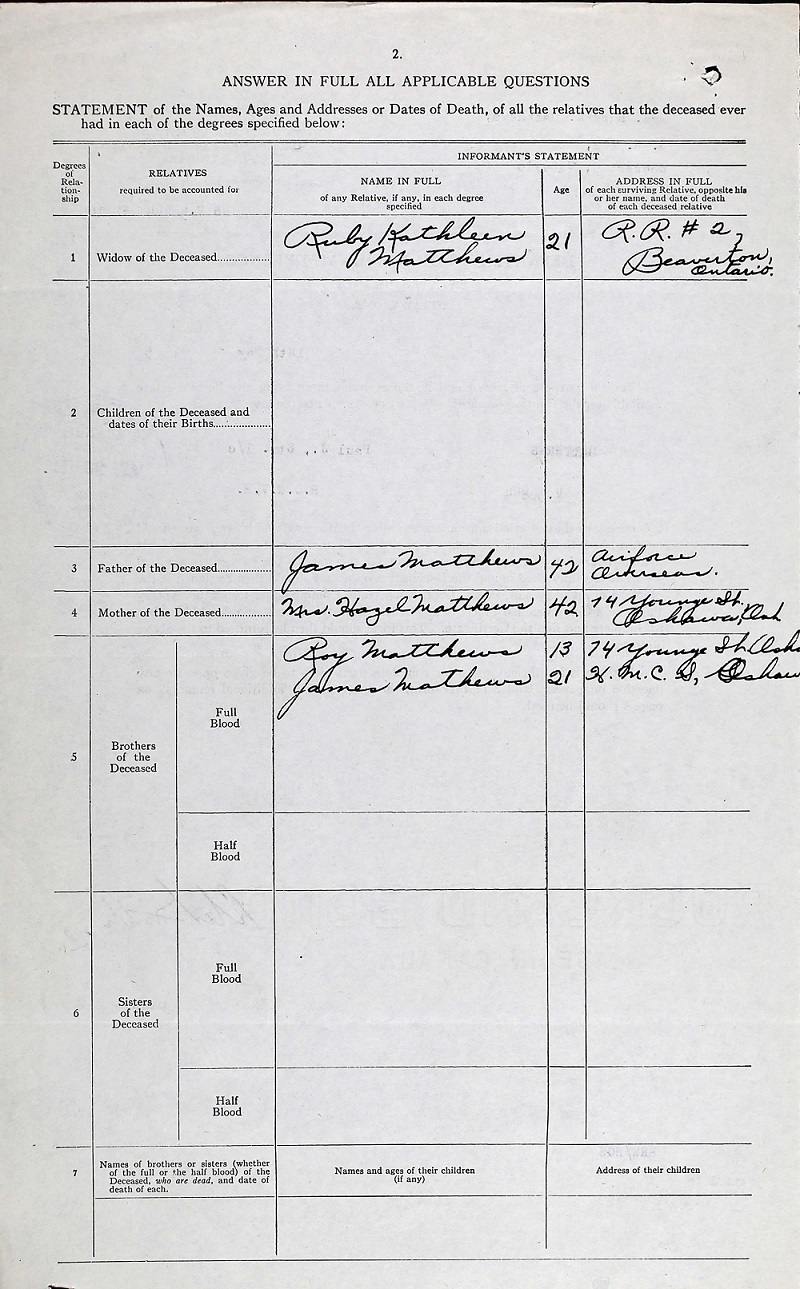 2.
ANSWER IN FULL ALL APPLICABLE QUESTIONS
STATEMENT of the Names, Ages and Addresses or Dates of Death, of all the relatives that the deceased ever
had in each of the degrees specified below:
Degrees of Rela- tion- ship
RELATIVES
required to be accounted for
INFORMANT'S STATEMENT
NAME IN FULL
of any Relative, if any, in each degree
specified
Age
ADDRESS IN FULL
of each surviving Relative, opposite his
or her name, and date of death
of each deceased relative
1 Widow of the Deceased.................. Ruby Kathleen 21 R.R. # 2,
Matthews Beaverton,
Ontario.
2 Children of the Deceased and
dates of their Births...................
3 Father of the Deceased.................... James Matthews 42 Airforce
Overseas.
4 Mother of the Deceased.................. Mrs. Hazel Matthews 42 74 Younge St.
Oshawa, Ont
5 Brothers
of the
Deceased
Full
Blood
Roy Matthews 13 74 Younge St. Osha
James Mathews 21 H.M.C.S, Oshaw
Half
Blood
6 Sisters
of the
Deceased
Full
Blood
Half
Blood
7 Names of brothers or sisters (whether
of the full or the half blood) of the
Deceased, who are dead, and date of
death of each.
Names and ages of their children
(if any)
Address of their children